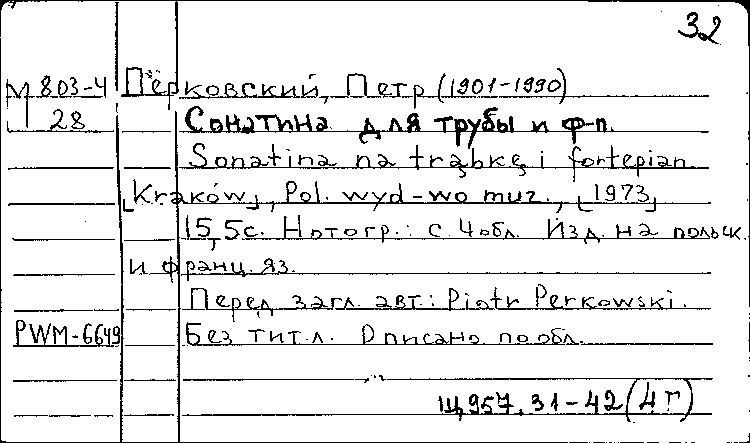 32
М 803-4 Пёрковский, Петр (1901-1990)
28 Сонатина для трубы и ф-п.
Sonatina na trąbkę i fortepian.
[Kraków], Pol. wyd-wo muz., [1973]
15,5с. Нотогр.: с. 4 обл. Изд. на польск.
и франц. яз.
Перед загл. авт.: Piotr Perkowski.
PWM-6649 Без тит. л. Описано по обл.
Ц 957.31-42 (4г)